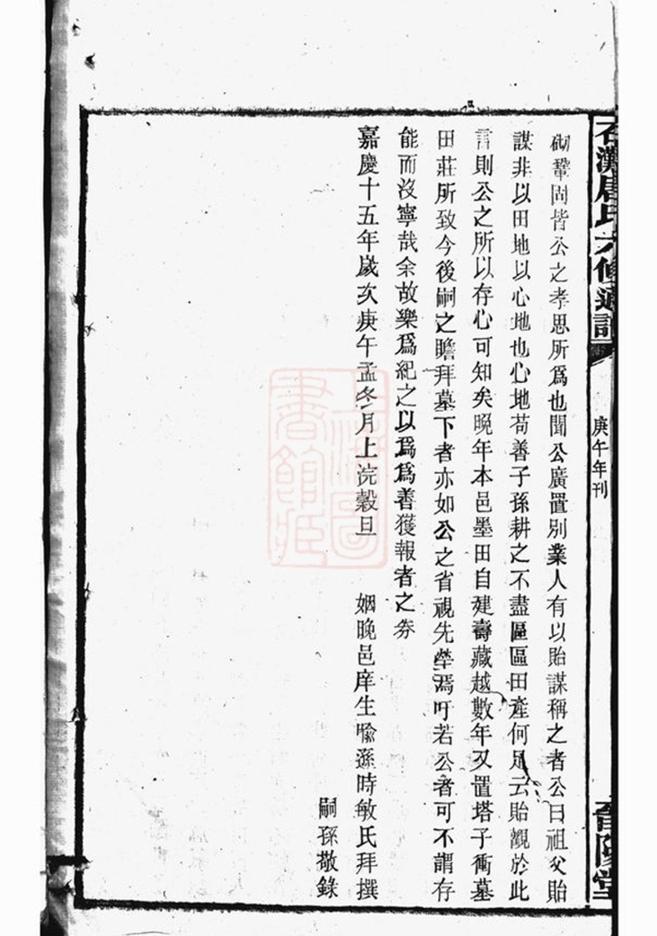 石灘唐氏六修通譜
庚午年刊
晉陽堂
砌鞏固皆公之孝思所為也聞公廣置別業人有以貽謀稱之者公曰祖父貽
謀非以田地以心地也心地苟善子孫耕之不盡區區田產何足云貽觀於此
言則公之所以存心可知矣晚年本邑墨田自建壽藏越數年又置塔子衝墓
田莊所致今後嗣之瞻拜墓下者亦如公之省視先塋焉吁若公者可不謂存
能而沒寧哉余故樂為紀之以為為善獲報者之券
嘉慶十五年歲次庚午孟冬月上浣穀旦 姻晚邑庠生喻遜時敏氏拜撰
嗣孫敬錄